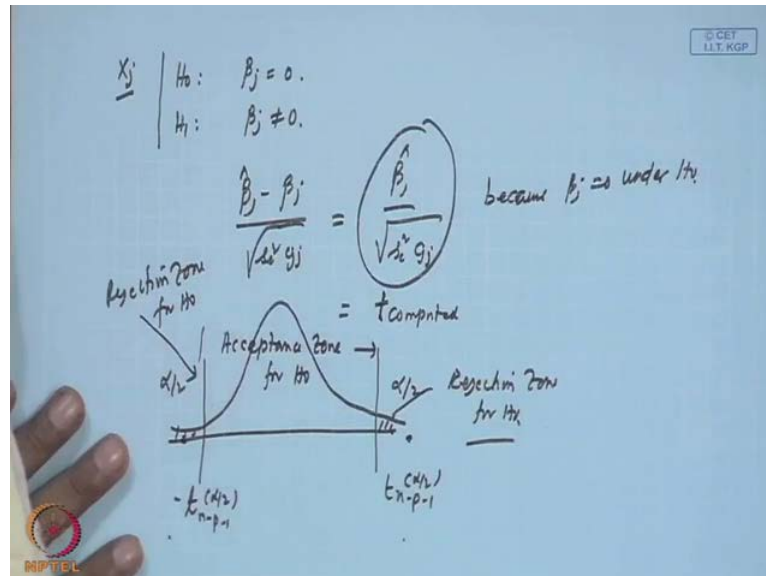 © CET
I.I.T. KGP
Xj | H0: βj = 0.
H1: βj ≠ 0.
(β̂j - βj) / √(se² gj) = β̂j / √(se² gj) because βj = 0 under H0.
= t computed
Rejection Zone
for H0
Acceptance Zone →
for H0
α/2
α/2
Rejection Zone
for H0
-t n-p-1 (α/2)
t n-p-1 (α/2)
NPTEL